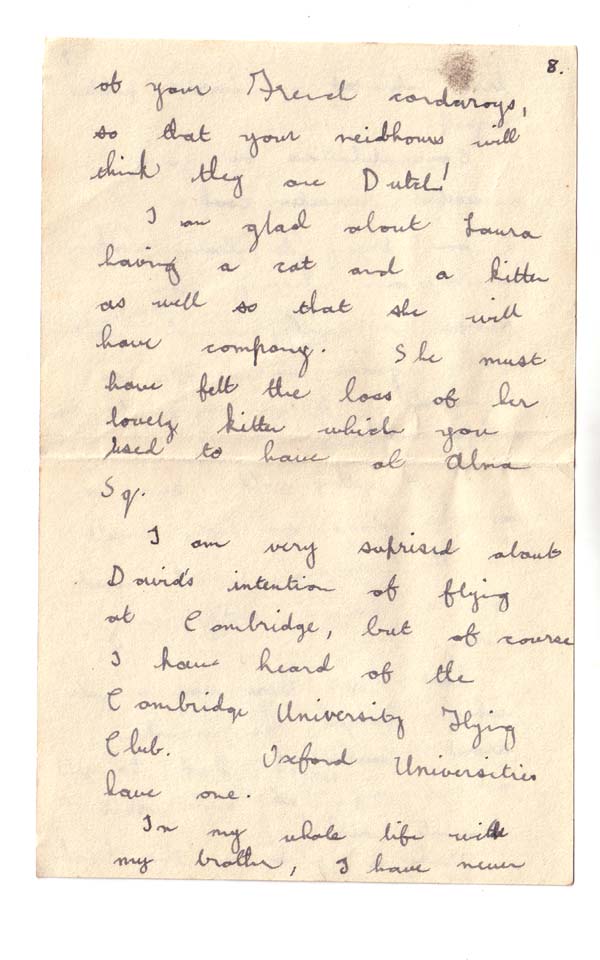 8.
of your French corduroys,
so that your neidhours will
think they are Dutch!
I am glad about Laura
having a cat and a kitten
as well so that she will
have company. She must
have felt the loss of her
lovely kitten which you
used to have at Alma
Sq.
I am very suprised about
David's intention of flying
at Cambridge, but of course
I have heard of the
Cambridge University Flying
Club. Oxford Universities
have one.
In my whole life with
my brother, I have never